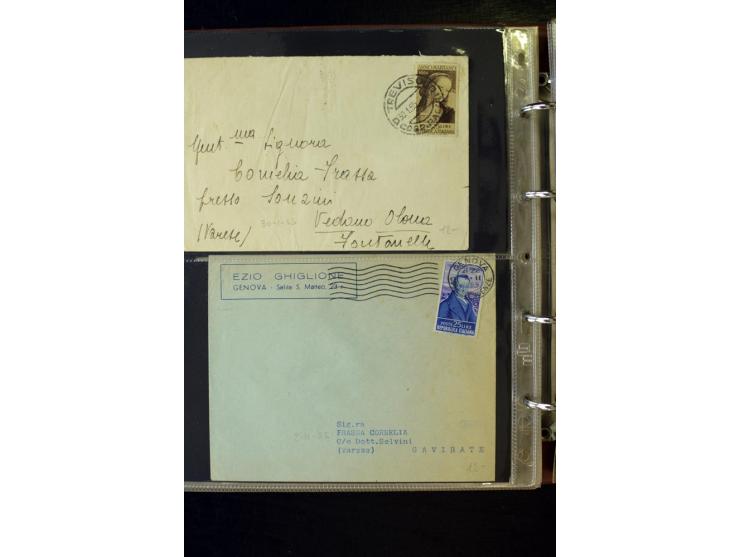 ANNO MARIANO
TREVISO
Gent.ma Signora
Cornelia Frassa
presso Sonzini
30-1-55
12-
Vedano Olona
(Varese)
Fontanelle
EZIO GHIGLIONE
GENOVA - Salita S. Matteo, 23 r.
GENOVA
POSTE 25 LIRE
REPUBBLICA ITALIANA
Sig.ra
FRASSA CORNELIA
C/o Dott.Selvini
(Varese) GAVIRATE
12-